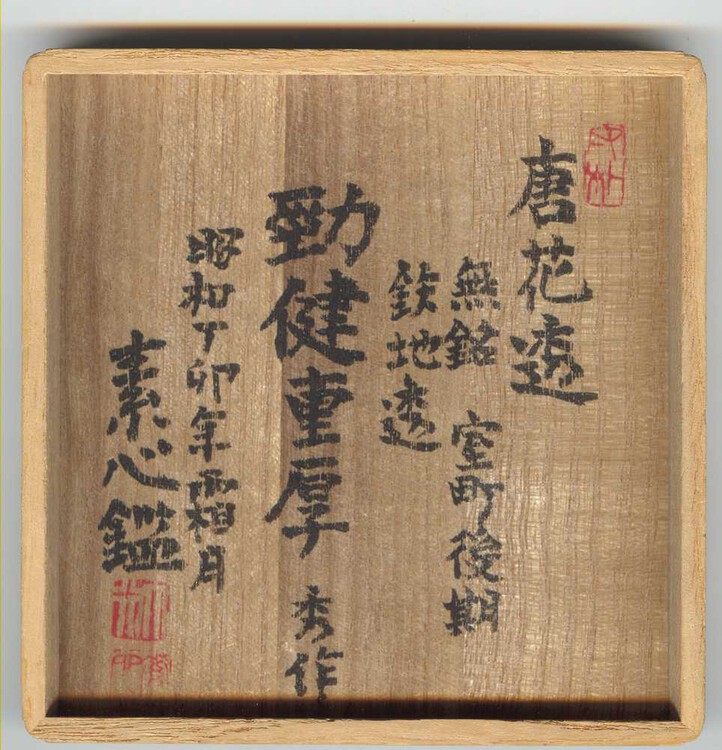 唐花透
無銘 室町後期
鉄地透
勁健重厚 秀作
昭和丁卯年霜月
素心鑑